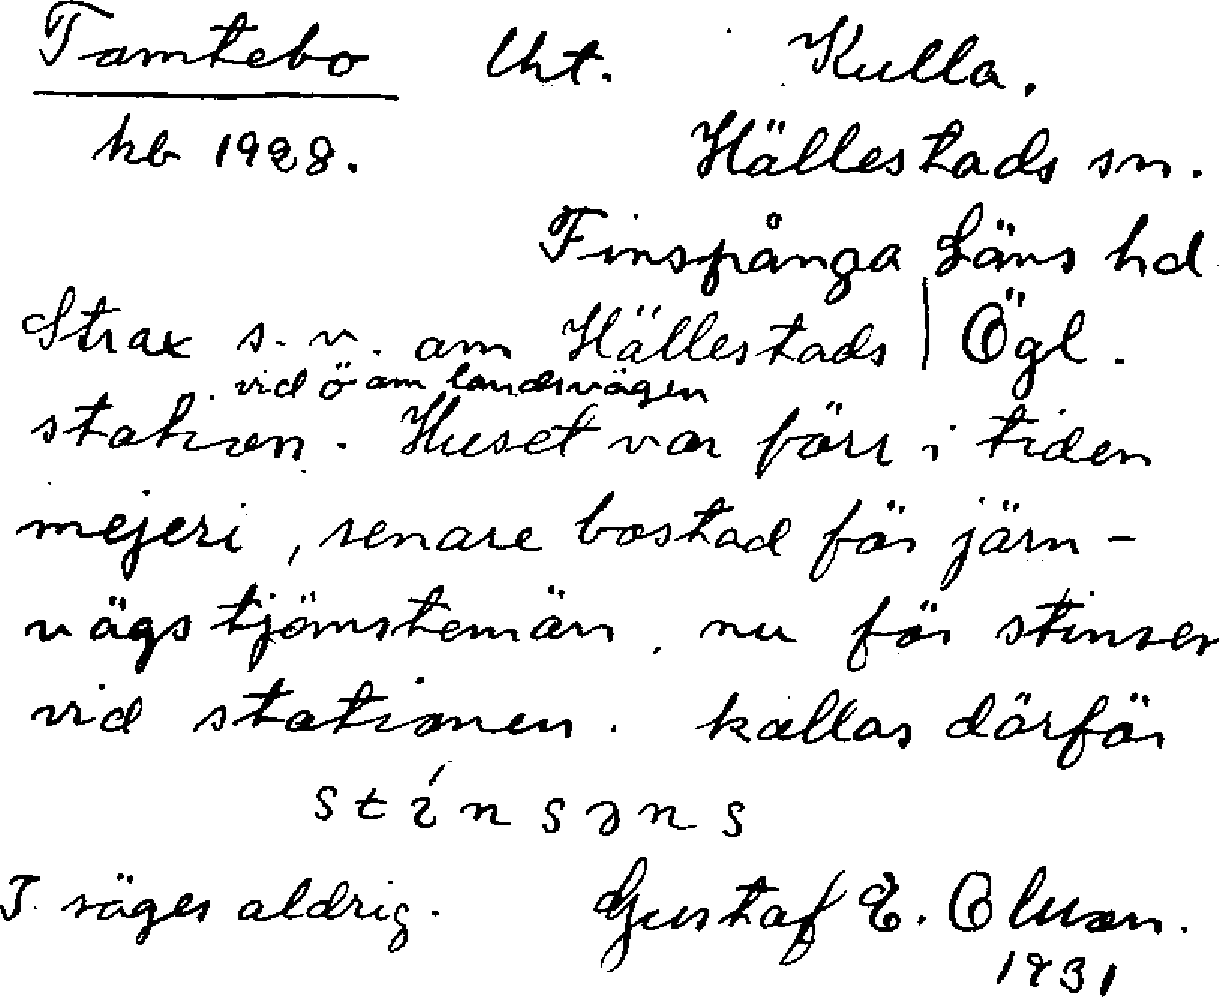 Tamtebo lht. Kulla.
hb 1928. Hällestads sn.
Finspånga Läns hd
Strax s.v. om Hällestads | Ögl.
vid ö om landsvägen
station. Huset var förr i tiden
mejeri, senare bostad för järn-
vägstjänstemän, nu för stinsen
vid stationen. kallas därför
stínsəns
T. säges aldrig. Gustaf E. Olsson.
1931